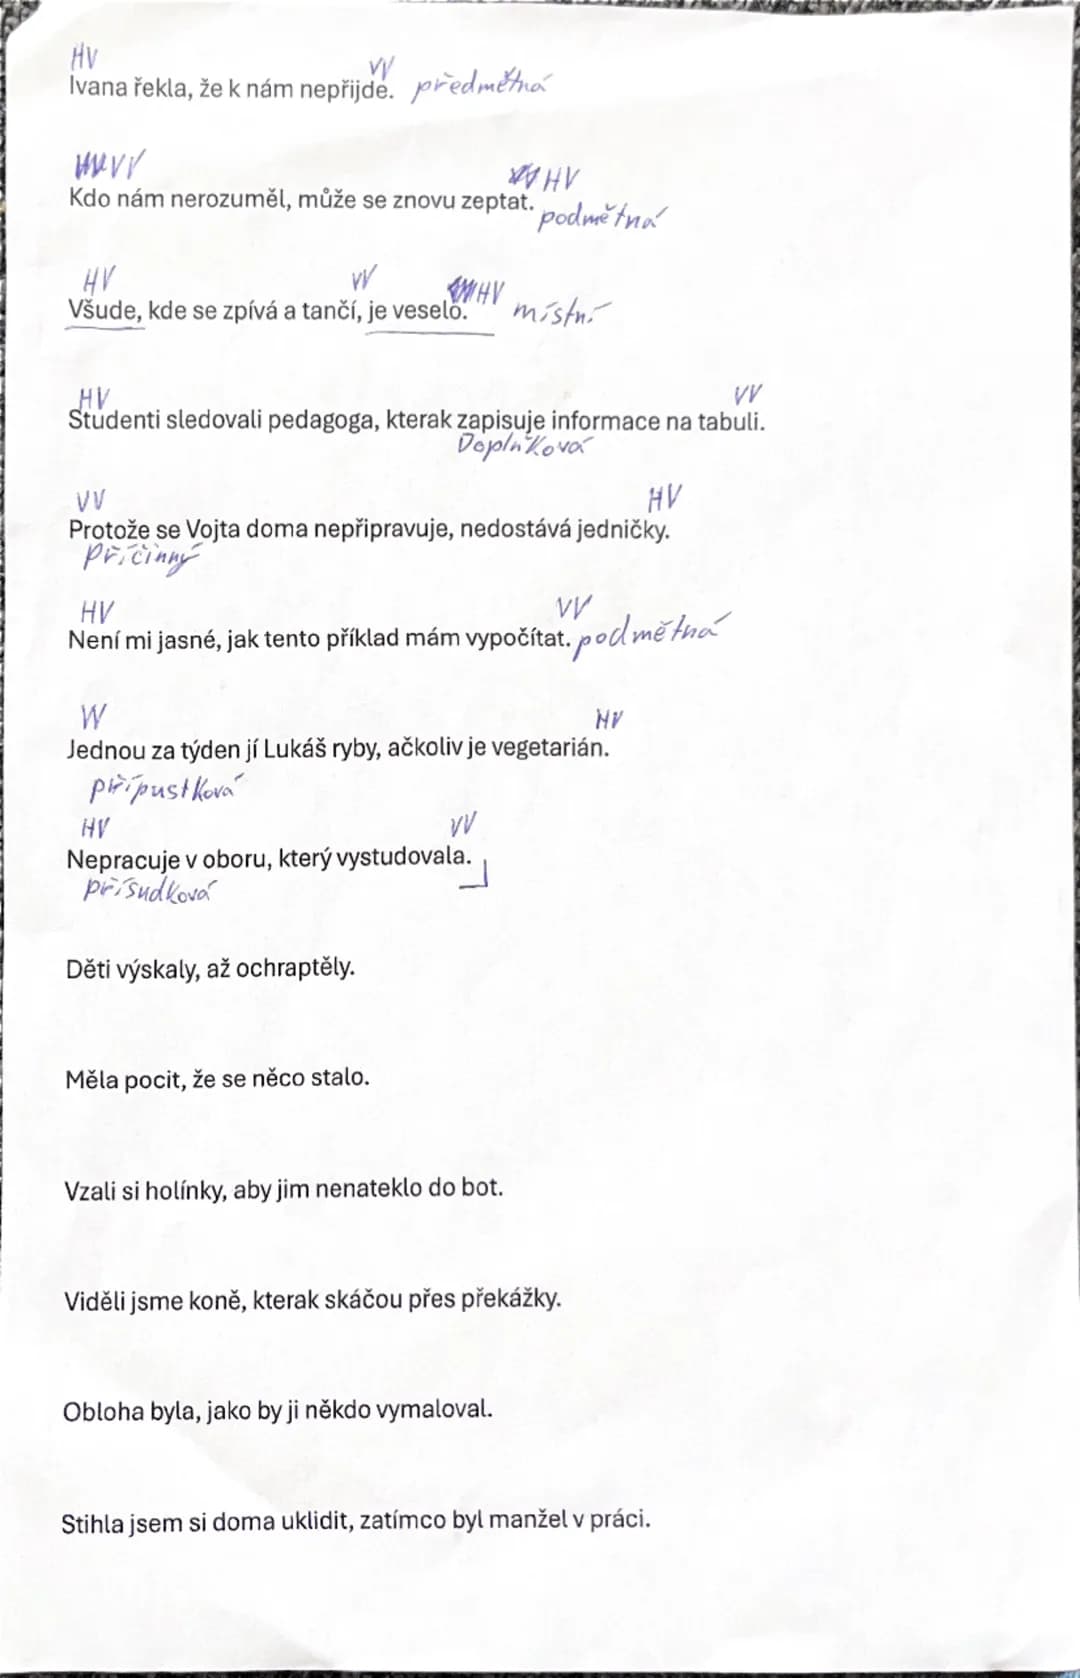 HV VV
Ivana řekla, že k nám nepřijde. předmětná
VV HV
Kdo nám nerozuměl, může se znovu zeptat.
podmětná
HV VV HV
Všude, kde se zpívá a tančí, je veselo. místní
HV VV
Studenti sledovali pedagoga, kterak zapisuje informace na tabuli.
Doplňková
VV HV
Protože se Vojta doma nepřipravuje, nedostává jedničky.
příčinný
HV VV
Není mi jasné, jak tento příklad mám vypočítat. podmětná
VV HV
Jednou za týden jí Lukáš ryby, ačkoliv je vegetarián.
přípustková
HV VV
Nepracuje v oboru, který vystudovala.
přísudková
Děti výskaly, až ochraptěly.
Měla pocit, že se něco stalo.
Vzali si holínky, aby jim nenateklo do bot.
Viděli jsme koně, kterak skáčou přes překážky.
Obloha byla, jako by ji někdo vymaloval.
Stihla jsem si doma uklidit, zatímco byl manžel v práci.